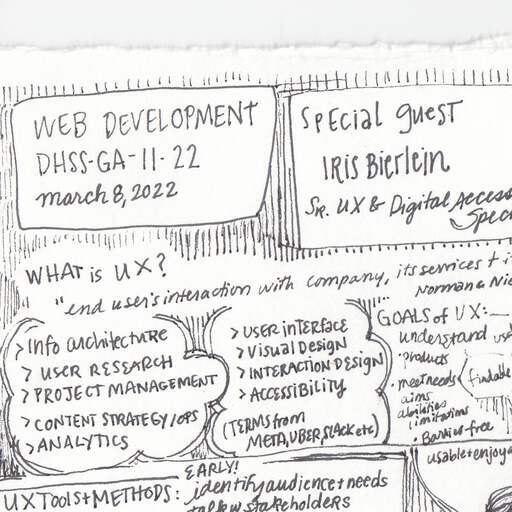 WEB DEVELOPMENT
DHSS-GA-11-22
march 8, 2022
SPECIAL guest
IRIS Bierlein
SR. UX & Digital Access
Speci
WHAT is UX?
"end user's interaction with company, its services +
Norman & Nie
> Info architecture
> USER RESEARCH
> PROJECT MANAGEMENT
> CONTENT STRATEGY/OPS
> ANALYTICS
> USER INTERFACE
> Visual DESIGN
> INTERACTION DESIGN
> ACCESSIBILITY
(TERMS from
META, UBER, SLACK etc)
GOALS of UX:
understand use
products
• meet needs
aims
abilities
limitations
• Barrier-free
findable
usable + enjoya
UX TOOLS + METHODS:
EARLY!
identify audience + needs
talk w stakeholders